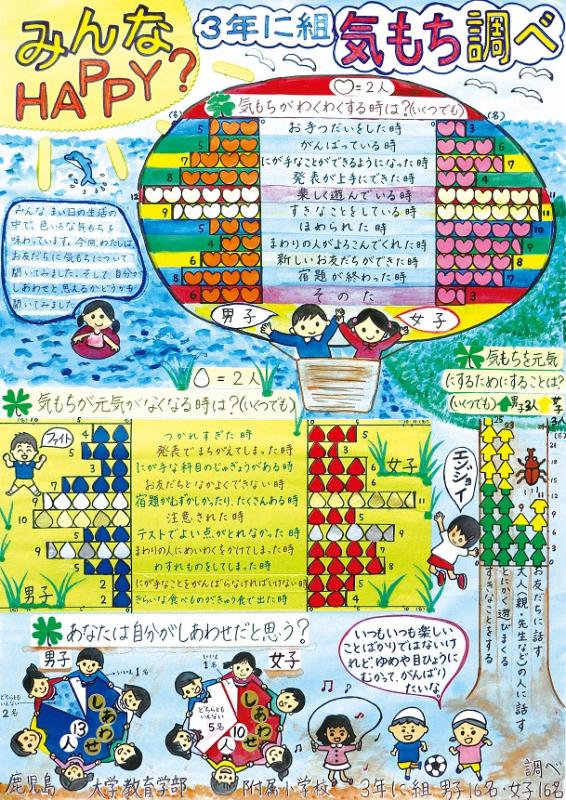 みんな
HAPPY?
3年に組
気もち調べ
♡=2人
気もちがわくわくする時は?(いくつでも)
(名)
(名)
5 お手つだいをした時 3
5 がんばっている時
にが手なことができるようになった時 7
発表が上手にできた時 4
12 楽しく遊んでいる時 11
9 すきなことをしている時
ほめられた時 10
まわりの人がよろこんでくれた時 9
新しいお友だちができた時 8
宿題が終わった時
6 そのた 3
みんなまい日の生活の
中で、色いろな気もちを
味わっています。今回、わたしは、
お友だちに気もちについて
聞いてみました。そして、自分が
しあわせと思えるかどうかも
聞いてみました。
男子
女子
=2人
気もちが元気がなくなる時は?(いくつでも)
ファイト
女子
男子
4 つかれすぎた時 5
5 発表でまちがえてしまった時
3 にが手な科目のじゅぎょうがある時
お友だちとなかよくできない時 6
9 宿題がむずかしかったり、たくさんある時 11
10 注意された時
テストでよい点がとれなかった時
9 まわりの人にめいわくをかけてしまった時
5 わすれものをしてしまった時
2 にが手なことをがんばらなければいけない時
2 きらいな食べものがきゅう食で出た時
気もちを元気
にするためにすることは?
(いくつでも)
男子3人
女子3人
エンジョイ
お友だちに話す
大人(親・先生など)の人に話す
とにかく遊びまくる
すきなことをする
あなたは自分がしあわせだと思う?
男子
いいえ1名
どちらともいえない
2名
しあわせ
13人
女子
いいえ
1名
どちらともいえない
5名
しあわせ
10人
いつもいつも楽しい
ことばかりではないけ
れど、ゆめや目ひょうに
むかって、がんばり
たいな。
調べ
鹿児島 大学教育学部 附属小学校 3年に組 男子16名・女子16名